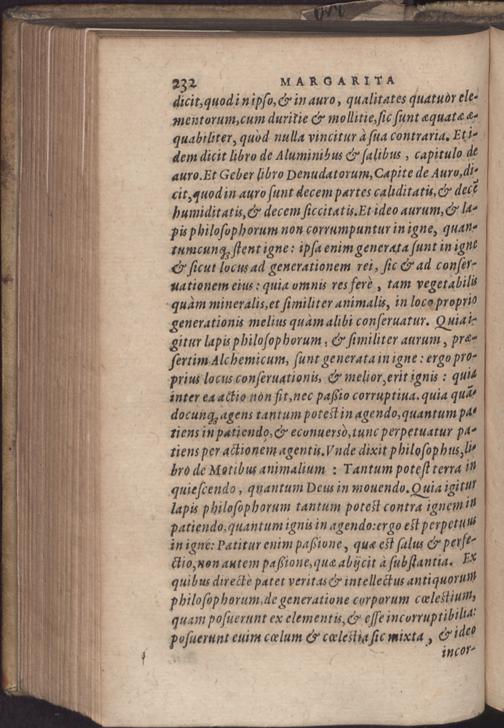 232 MARGARITA
dicit, quod in ipso, & in auro, qualitates quatuor ele-
mentorum, cum duritie & mollitie, sic sunt æquatæ æ-
quabiliter, quòd nulla vincitur à sua contraria. Et i-
dem dicit libro de Aluminibus & salibus, capitulo de
auro. Et Geber libro Denudatorum, Capite de Auro, di-
cit, quod in auro sunt decem partes caliditatis, & decē
humiditatis, & decem siccitatis. Et ideo aurum, & la-
pis philosophorum non corrumpuntur in igne, quan-
tumcunq; stent igne: ipsa enim generata sunt in igne
& sicut locus ad generationem rei, sic & ad conser-
uationem eius: quia omnis res ferè, tam vegetabilis
quàm mineralis, et similiter animalis, in loco proprio
generationis melius quàm alibi conseruatur. Quia i-
gitur lapis philosophorum, & similiter aurum, præ-
sertim Alchemicum, sunt generata in igne: ergo pro-
prius locus conseruationis, & melior, erit ignis: quia
inter ea actio non fit, nec passio corruptiua. quia quā-
docunq; agens tantum potest in agendo, quantum pa-
tiens in patiendo, & econuersò, tunc perpetuatur pa-
tiens per actionem agentis. Vnde dixit philosophus, li-
bro de Motibus animalium: Tantum potest terra in
quiescendo, quantum Deus in mouendo. Quia igitur
lapis philosophorum tantum potest contra ignem in
patiendo, quantum ignis in agendo: ergo est perpetuus
in igne: Patitur enim passione, quæ est salus & perfe-
ctio, non autem passione, quæ abijcit à substantia. Ex
quibus directè patet veritas & intellectus antiquorum
philosophorum, de generatione corporum cœlestium,
quam posuerunt ex elementis, & esse incorruptibilia:
posuerunt euim cœlum & cœlestia sic mixta, & ideo
incor-